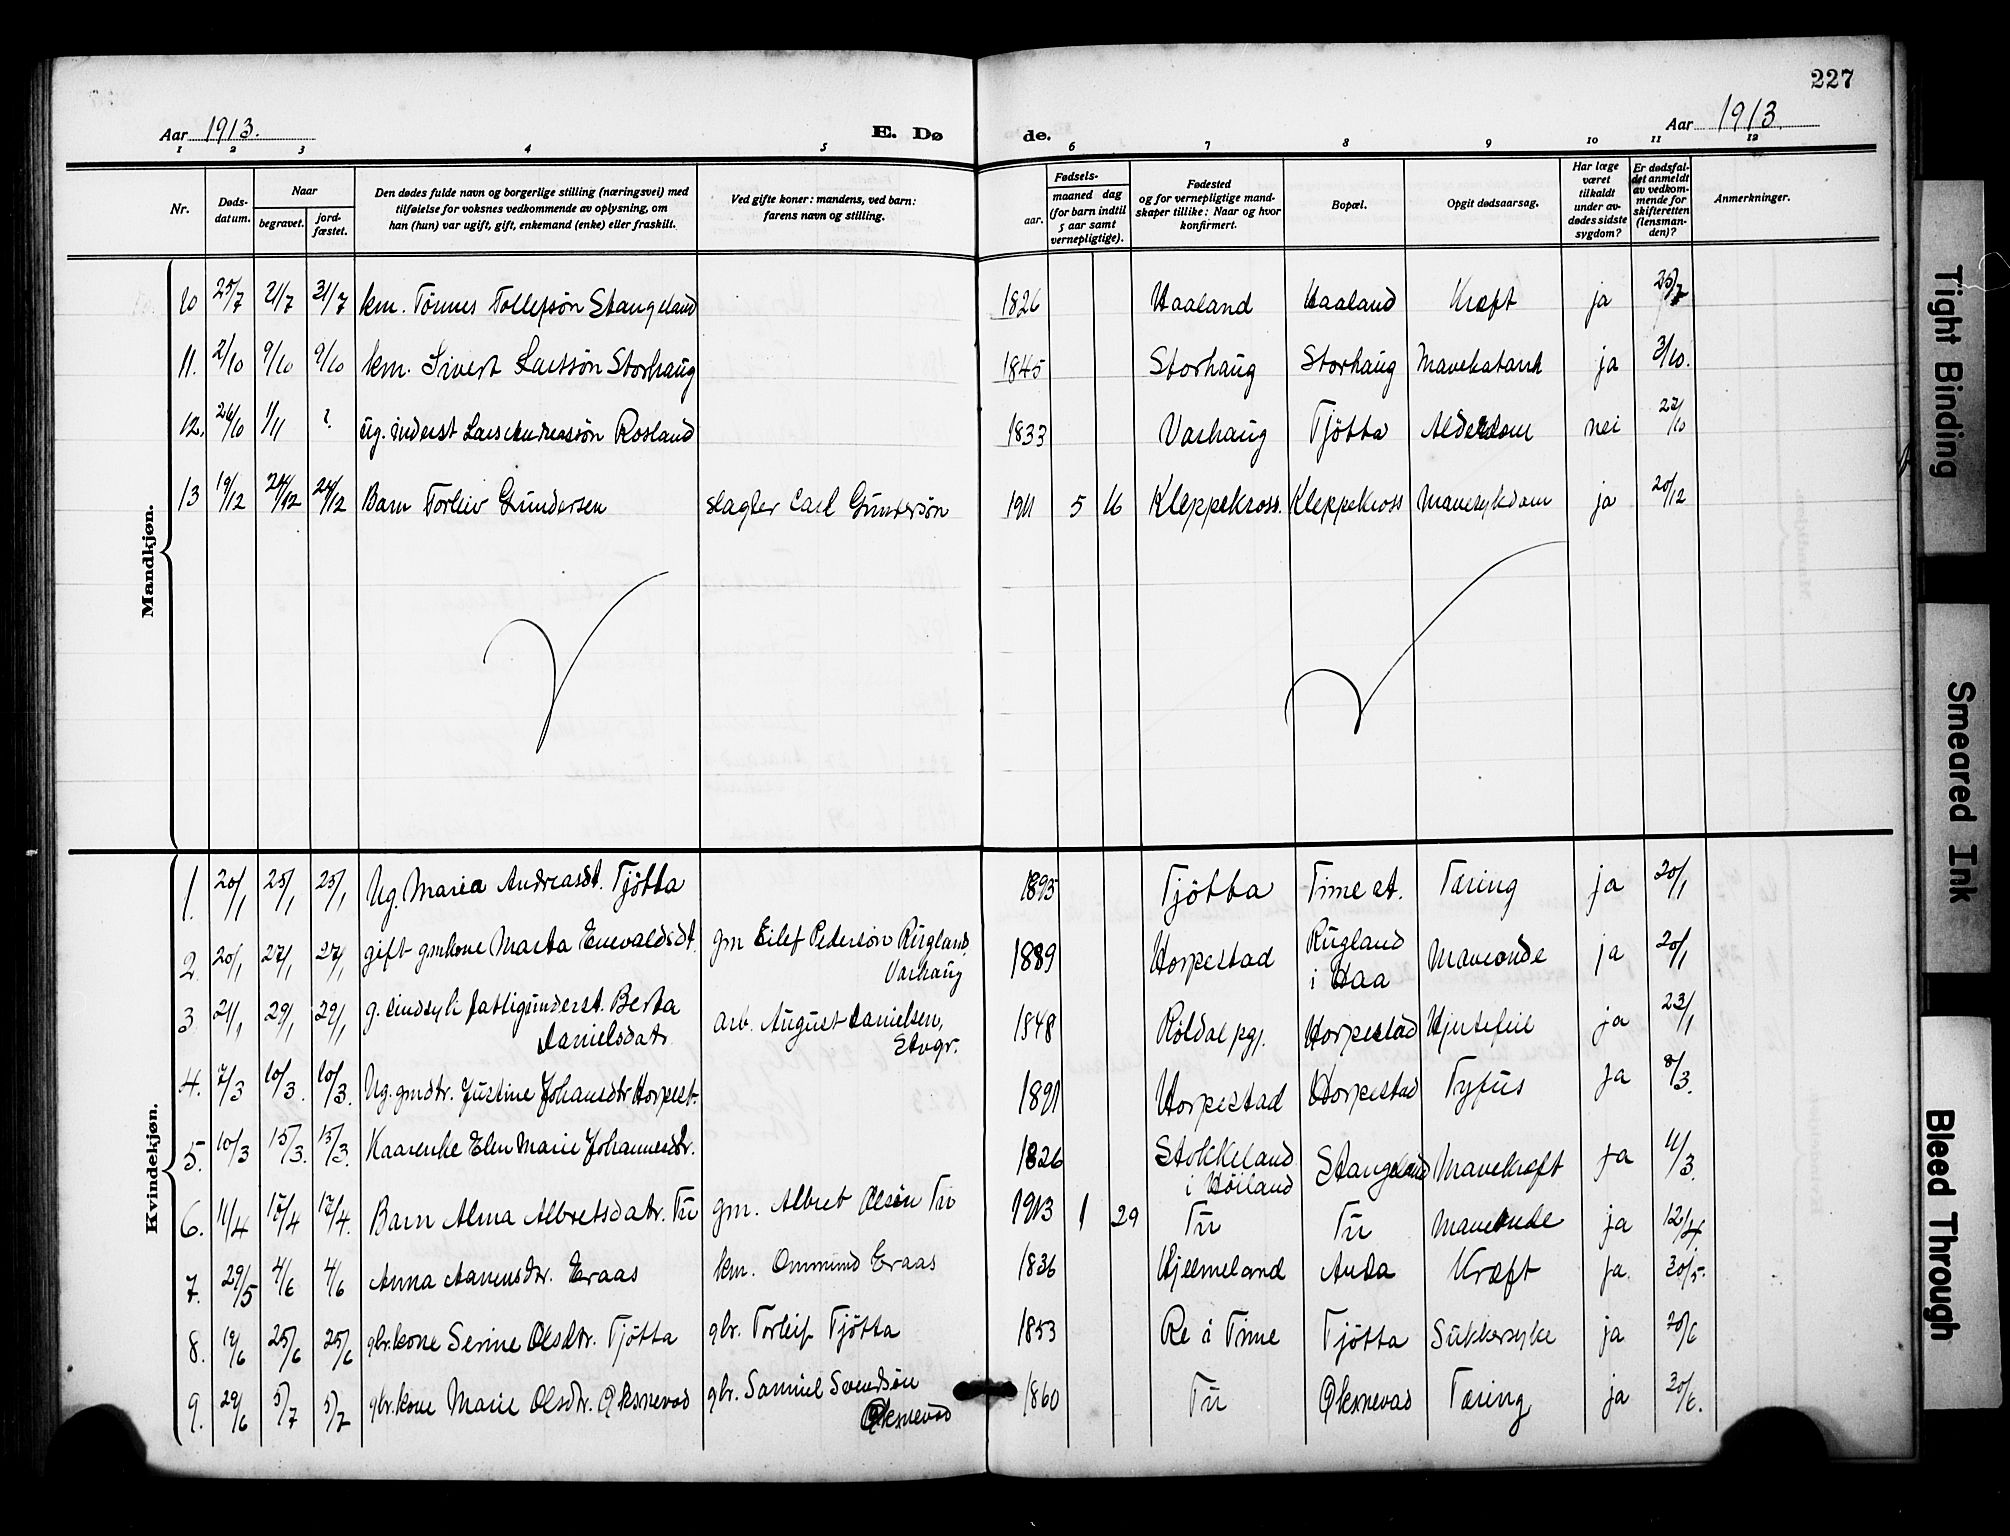 227
Aar 1913. E. Dø de. Aar 1913.
1 2 3 4 5 6 7 8 9 10 11 12
Nr. Døds-datum. Naar begravet. jord-fæstet. Den dødes fulde navn og borgerlige stilling (næringsvei) med tilføielse for voksnes vedkommende av oplysning, om han (hun) var ugift, gift, enkemand (enke) eller fraskilt. Ved gifte koner: mandens, ved barn: farens navn og stilling. Fødsels- aar. maaned dag (for barn indtil 5 aar samt vernepligtige). Fødested og for vernepligtige mandskaper tillike: Naar og hvor konfirmert. Bopæl. Opgit dødsaarsag. Har læge været tilkaldt under avdødes sidste sygdom? Er dødsfaldet anmeldt av vedkommende for skifteretten (lensmanden)? Anmerkninger.
Mandkjøn.
10 25/7 31/7 km. Tønnes Tollefsøn Stangeland 1826 Haaland Haaland Kræft ja 25/7
11. 2/10 9/10 9/10 km. Sivert Larssøn Storhaug 1845 Storhaug Storhaug Mavekatarrh ja 3/10.
12. 26/10 1/11 ? ug. inderst Lars Andreassøn Rosland 1833 Varhaug Tjøtta Alderdom nei 27/10
13 19/12 24/12 24/12 Barn Torleiv Gundersen slagter Carl Gundersøn 1911 5 16 Kleppekross. Kleppekross Mavesykdom ja 20/12
Kvindekjøn.
1. 20/1 25/1 25/1 Ug. Maria Andreasdt. Tjøtta 1893 Tjøtta Time st. Tæring ja 20/1
2. 20/1 27/1 27/1 gift gmkone Marta Enevaldsdt. gm Eilef Pedersøn Rugland, 1889 Horpestad Rugland Maveonde ja 20/1
Varhaug i Haa
3. 21/1 29/1 29/1 g. sindsyk fattigunderst. Berta arb. August Danielsen, 1848 Røldal pgj. Horpestad Hjertefeil ja 23/1
Danielsdatr. Stvgr.
4. 7/3 10/3. 10/3. Ug. gmdtr. Justine Johansdtr Horpest. 1891 Horpestad Horpestad Tyfus ja 8/3.
5. 10/3 15/3. 15/3. Kaarenke Elen Marie Johannesdtr. 1826 Stokkeland Stangeland Mavekræft ja 11/3.
i Høiland
6. 11/4 17/4 17/4. Barn Alma Albretsdatr. Tu gm. Albret Olsøn Tu 1913 1 29 Tu Tu Maveonde ja 12/4
7. 29/5 4/6 4/6 Anna Aanensdtr. Eraas km. Ommund Eraas 1836 Hjelmeland Anda Kræft ja. 30/5.
8. 19/6 25/6 25/6 gbr.kone Serine Olsdtr. Tjøtta gbr. Torleif Tjøtta 1853 Re i Time Tjøtta Sukkersyke ja 20/6
9. 29/6 5/7 5/7 gbr.kone Marie Olsdtr. Øksnevad gbr. Samuel Svendsøn 1860 Tu Øksnevad Tæring ja 30/6.
Øksnevad
Tight Binding
Smeared Ink
Bleed Through